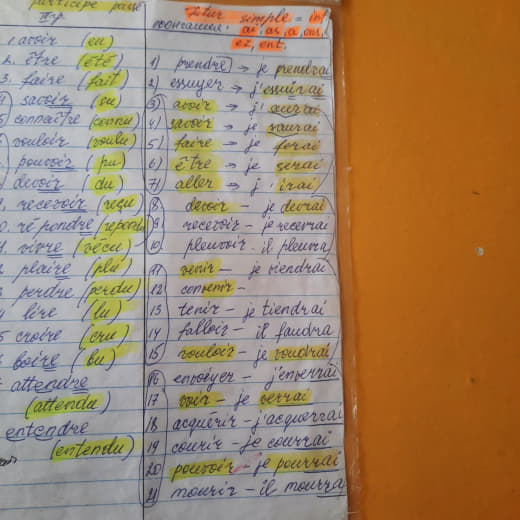 participe passé
III гр
1. avoir (eu)
2. être (été)
3. faire (fait)
4) savoir (su)
5 connaître (connu)
vouloir (voulu)
pouvoir (pu)
devoir (du)
recevoir (reçu)
répondre (répond
vivre (vécu)
plaire (plu)
3 perdre (perdu)
4 lire (lu)
5 croire (cru)
boire (bu)
attendre
(attendu)
entendre
(entendu)
Futur simple = inf
окончания: ai, as, a, ons,
ez, ont.
1) prendre → je prendrai
2) essuyer → j'essuirai
3) avoir → j'aurai
4) savoir → je saurai
5) faire → je ferai
6) être → je serai
7) aller → j'irai
8 devoir - je devrai
9 recevoir - je recevrai
10) pleuvoir - il pleuvra
11 venir - je viendrai
12 convenir -
13 tenir - je tiendrai
14 falloir - il faudra
15 vouloir - je voudrai
16 envoyer - j'enverrai
17 voir - je verrai
18 acquérir - j'acquerrai
19 courir - je courrai
20 pouvoir - je pourrai
21 mourir - il mourra